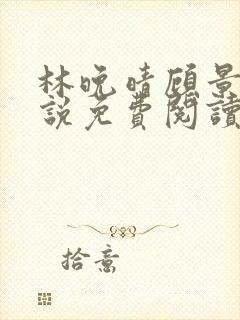 林晚晴顾景
說免費閱讀
拾意